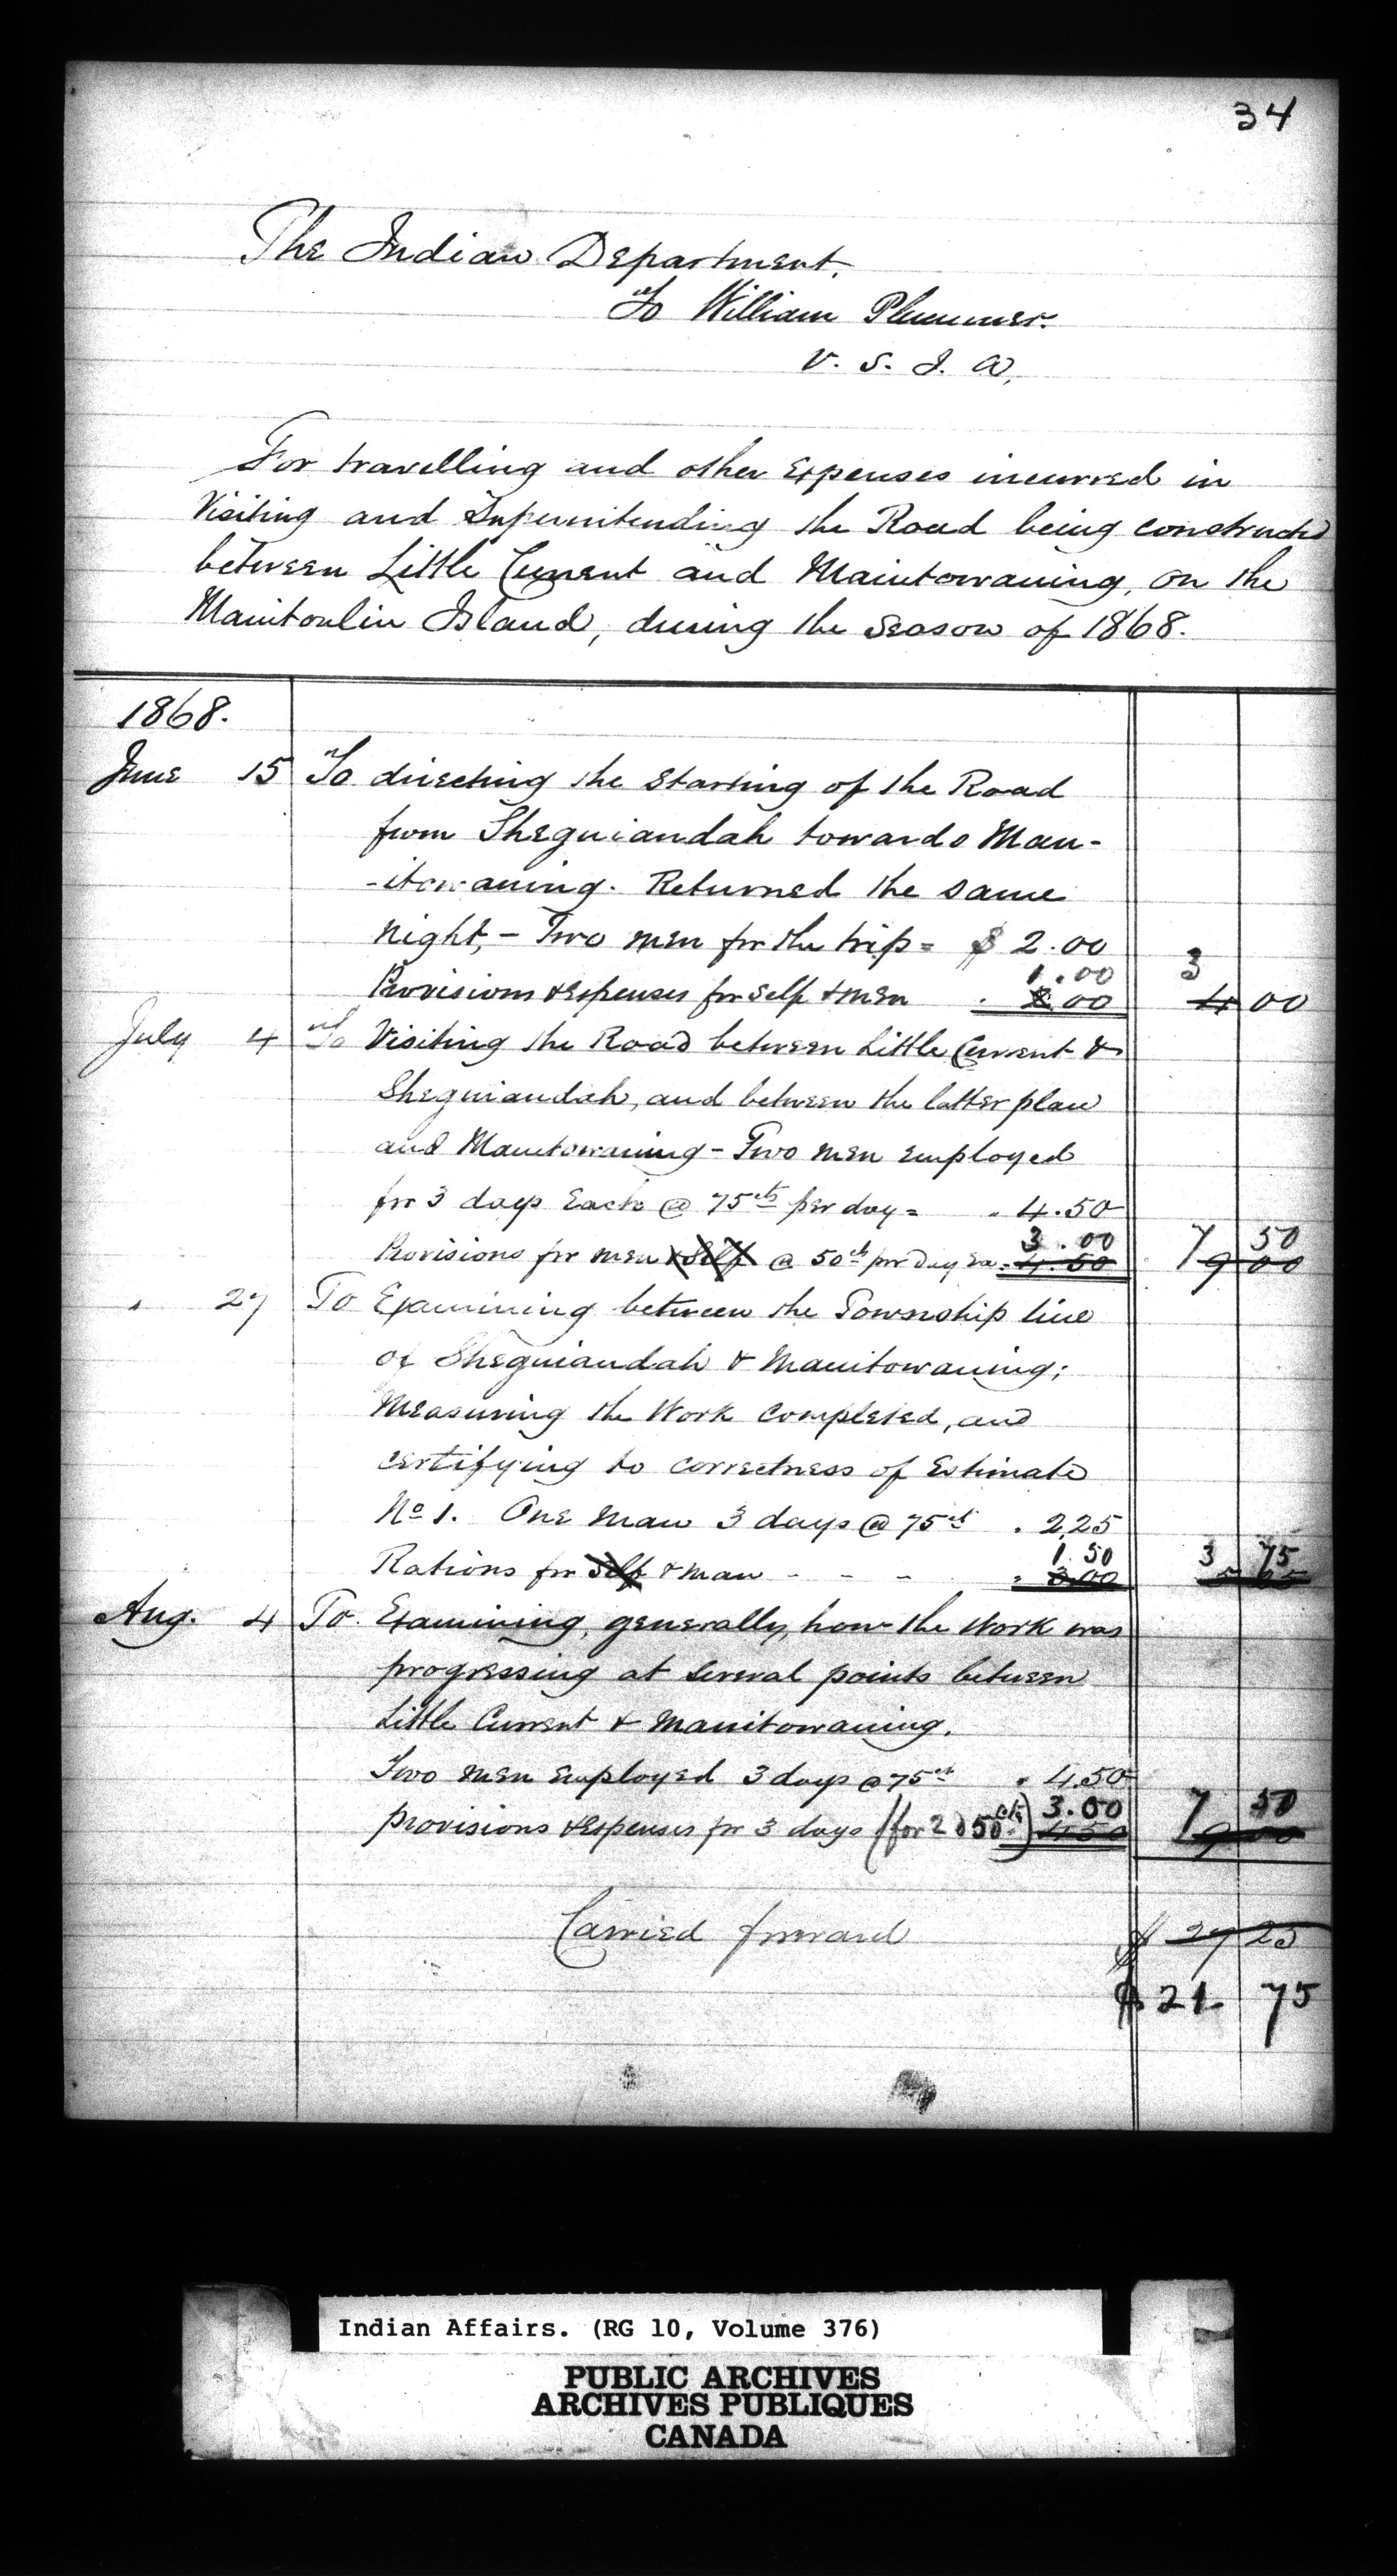 34
The Indian Department.
To William Plummer.
V. S. I. A.
For travelling and other Expenses incurred in
Visiting and Superintending the Road being constructed
between Little Current and Manitowaning, on the
Manitoulin Island, during the Season of 1868.
1868.
June 15 To directing the starting of the Road
from Sheguiandah towards Man-
-itowaning. Returned the same
night, - Two men for the trip = $ 2.00
1.00 3
Provisions & Expenses for Self & men . 2.00 4 00
July 4 To Visiting the Road between Little Current &
Sheguiandah, and between the latter place
and Manitowaning - Two men employed
for 3 days Each @ 75cts per day = " 4.50
3.00 7 50
Provisions for men & Self @ 50cts per Day Ea. = 4.50 9 00
" 27 To Examining between the Township line
of Sheguiandah & Manitowaning;
Measuring the Work completed, and
certifying to correctness of Estimate
No 1. One man 3 days @ 75cts . 2.25
1.50 3 75
Rations for Self & man - - - = 3.00 5 25
Aug. 4 To Examining, generally, how the Work was
progressing at several points between
Little Current & Manitowaning.
Two men Employed 3 days @ 75cts " 4.50
3.00 7 50
Provisions & Expenses for 3 days (for 2 @ 50cts) 4.50 9 00
Carried forward $ 27 25
$ 21 75
Indian Affairs. (RG 10, Volume 376)
PUBLIC ARCHIVES
ARCHIVES PUBLIQUES
CANADA